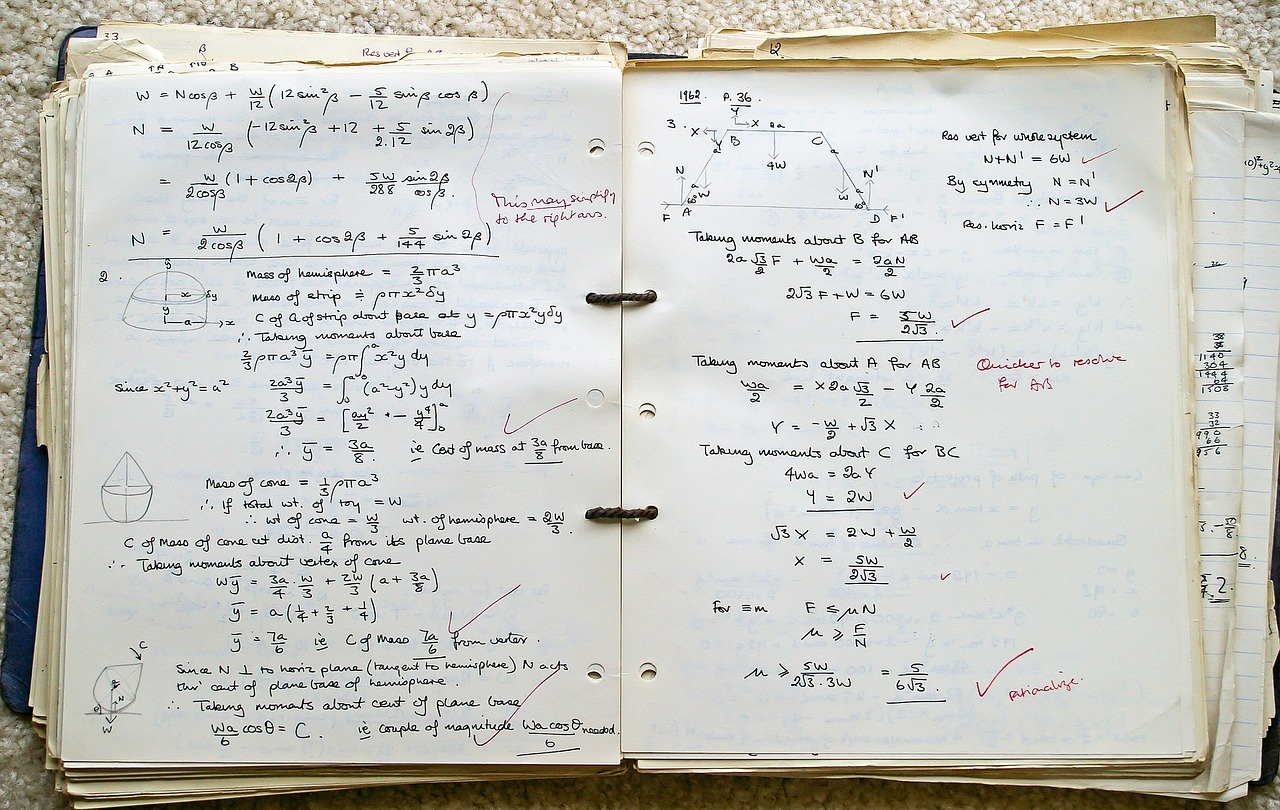 33.
β
Res vert
W = Ncosβ + W/12 (12 sin²β − 5/12 sinβ cosβ)
N = W/12cosβ (−12sin²β + 12 + 5/2.12 sin2β)
= W/2cosβ (1 + cos2β) + 5W/288 sin2β/cosβ.
This may simplify
to the right ans.
N = W/2cosβ (1 + cos2β + 5/144 sin2β)
2.
Mass of hemisphere = 2/3 πa³
Mass of strip ≑ ρπx²δy
C of G of strip about base at y = ρπx²yδy
∴ Taking moments about base
2/3 ρπa³ȳ = ρπ∫₀ᵃ x²y dy
Since x²+y²=a² 2a³ȳ/3 = ∫₀ᵃ (a²−y²)y dy
2a³ȳ/3 = [ay²/2 + − y⁴/4]₀ᵃ
∴ ȳ = 3a/8 ie Cent of mass at 3a/8 from base.
Mass of cone = 1/3 ρπa³
∴ If total wt. of toy = W
∴ wt of cone = W/3 wt. of hemisphere = 2W/3.
C of Mass of cone at dist. a/4 from its plane base
∴ Taking moments about vertex of cone
Wȳ = 3a/4 . W/3 + 2W/3 (a + 3a/8)
ȳ = a(1/4 + 2/3 + 1/4)
ȳ = 7a/6 ie C of Mass 7a/6 from vertex.
C
Since N ⊥ to horiz plane (tangent to hemisphere) N acts
thro' cent of plane base of hemisphere.
∴ Taking moments about cent of plane base
Wa/6 cosθ = C. ie couple of magnitude Wa cosθ/6 needed.
N
W
12.
1962. P. 36.
3. X Y X 2a
B C
4W
a a
N N'
a a
W W
60° 60°
F A D F'
Res vert for whole system
N+N' = 6W
By symmetry N = N'
∴ N = 3W
Res. horiz F = F'
Taking moments about B for AB
2a √3/2 F + Wa/2 = 2aN/2
2√3 F + W = 6W
F = 5W/2√3.
Taking moments about A for AB
Quicker to resolve
for AB
Wa/2 = X 2a √3/2 − Y 2a/2
Y = −W/2 + √3 X
Taking moments about C for BC
4Wa = 2aY
Y = 2W
√3 X = 2W + W/2
X = 5W/2√3
For ≡m F ≤ μN
μ ≥ F/N
μ ≥ 5W/2√3.3W = 5/6√3.
rationalize.
38
38
1140
304
1444
64
1508
33
32
990
66
956